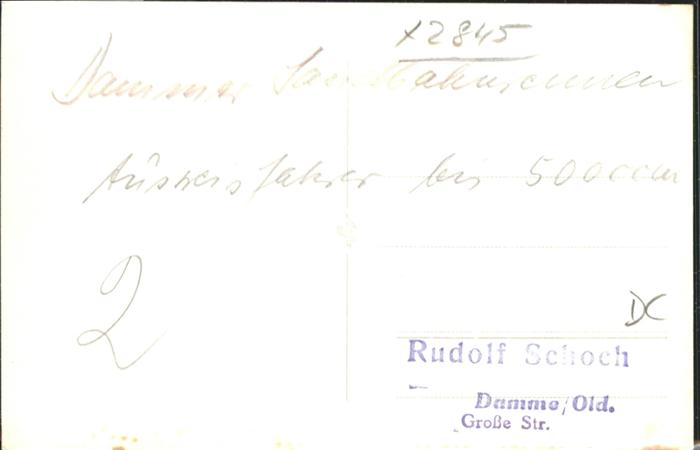 x2845
Dammer Sandbahnrennen
Ausweisfahrer bis 500ccm
2
DC
Rudolf Schoch
Damme/Old.
Große Str.